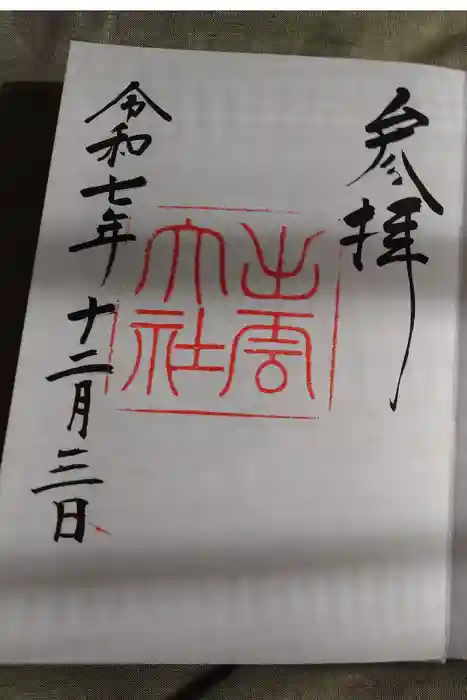 参拝
出雲
大社
令和七年 十二月三日